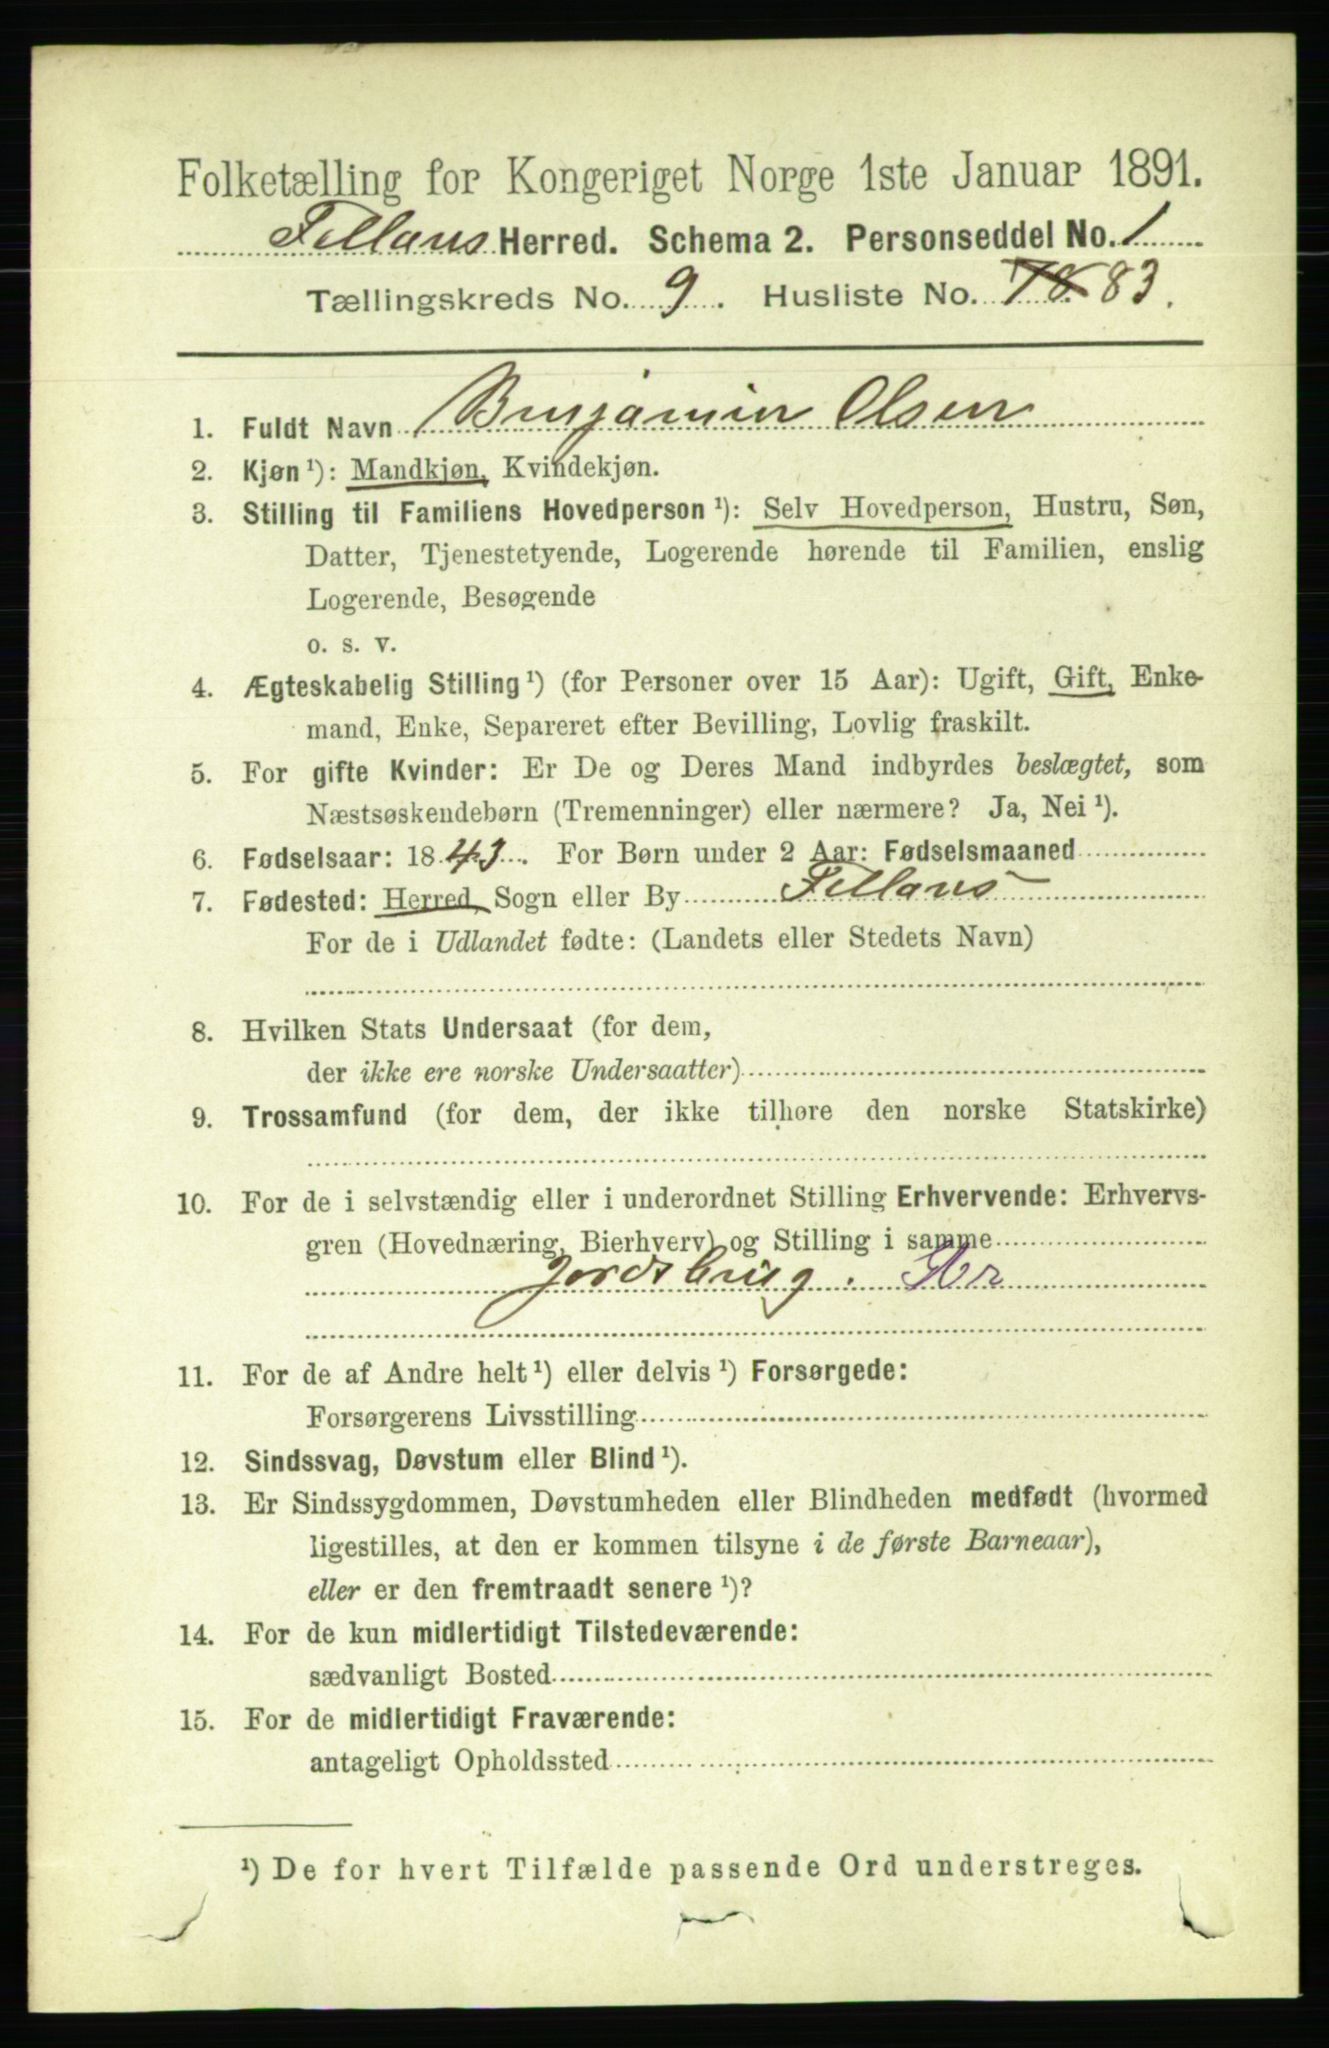 Folketælling for Kongeriget Norge 1ste Januar 1891.
Fillans Herred. Schema 2. Personseddel No. 1
Tællingskreds No. 9. Husliste No. 78 83.
1. Fuldt Navn Benjamin Olsen
2. Kjøn¹): Mandkjøn, Kvindekjøn.
3. Stilling til Familiens Hovedperson¹): Selv Hovedperson, Hustru, Søn,
Datter, Tjenestetyende, Logerende hørende til Familien, enslig
Logerende, Besøgende
o. s. v.
4. Ægteskabelig Stilling¹) (for Personer over 15 Aar): Ugift, Gift, Enke-
mand, Enke, Separeret efter Bevilling, Lovlig fraskilt.
5. For gifte Kvinder: Er De og Deres Mand indbyrdes beslægtet, som
Næstsøskendebørn (Tremenninger) eller nærmere? Ja, Nei¹).
6. Fødselsaar: 1843. For Børn under 2 Aar: Fødselsmaaned
7. Fødested: Herred, Sogn eller By Fillans
For de i Udlandet fødte: (Landets eller Stedets Navn)
8. Hvilken Stats Undersaat (for dem,
der ikke ere norske Undersaatter)
9. Trossamfund (for dem, der ikke tilhøre den norske Statskirke)
10. For de i selvstændig eller i underordnet Stilling Erhvervende: Erhvervs-
gren (Hovednæring, Bierhverv) og Stilling i samme
Jordsbrug.
11. For de af Andre helt¹) eller delvis¹) Forsørgede:
Forsørgerens Livsstilling
12. Sindssvag, Døvstum eller Blind¹).
13. Er Sindssygdommen, Døvstumheden eller Blindheden medfødt (hvormed
ligestilles, at den er kommen tilsyne i de første Barneaar),
eller er den fremtraadt senere¹)?
14. For de kun midlertidigt Tilstedeværende:
sædvanligt Bosted
15. For de midlertidigt Fraværende:
antageligt Opholdssted
¹) De for hvert Tilfælde passende Ord understreges.